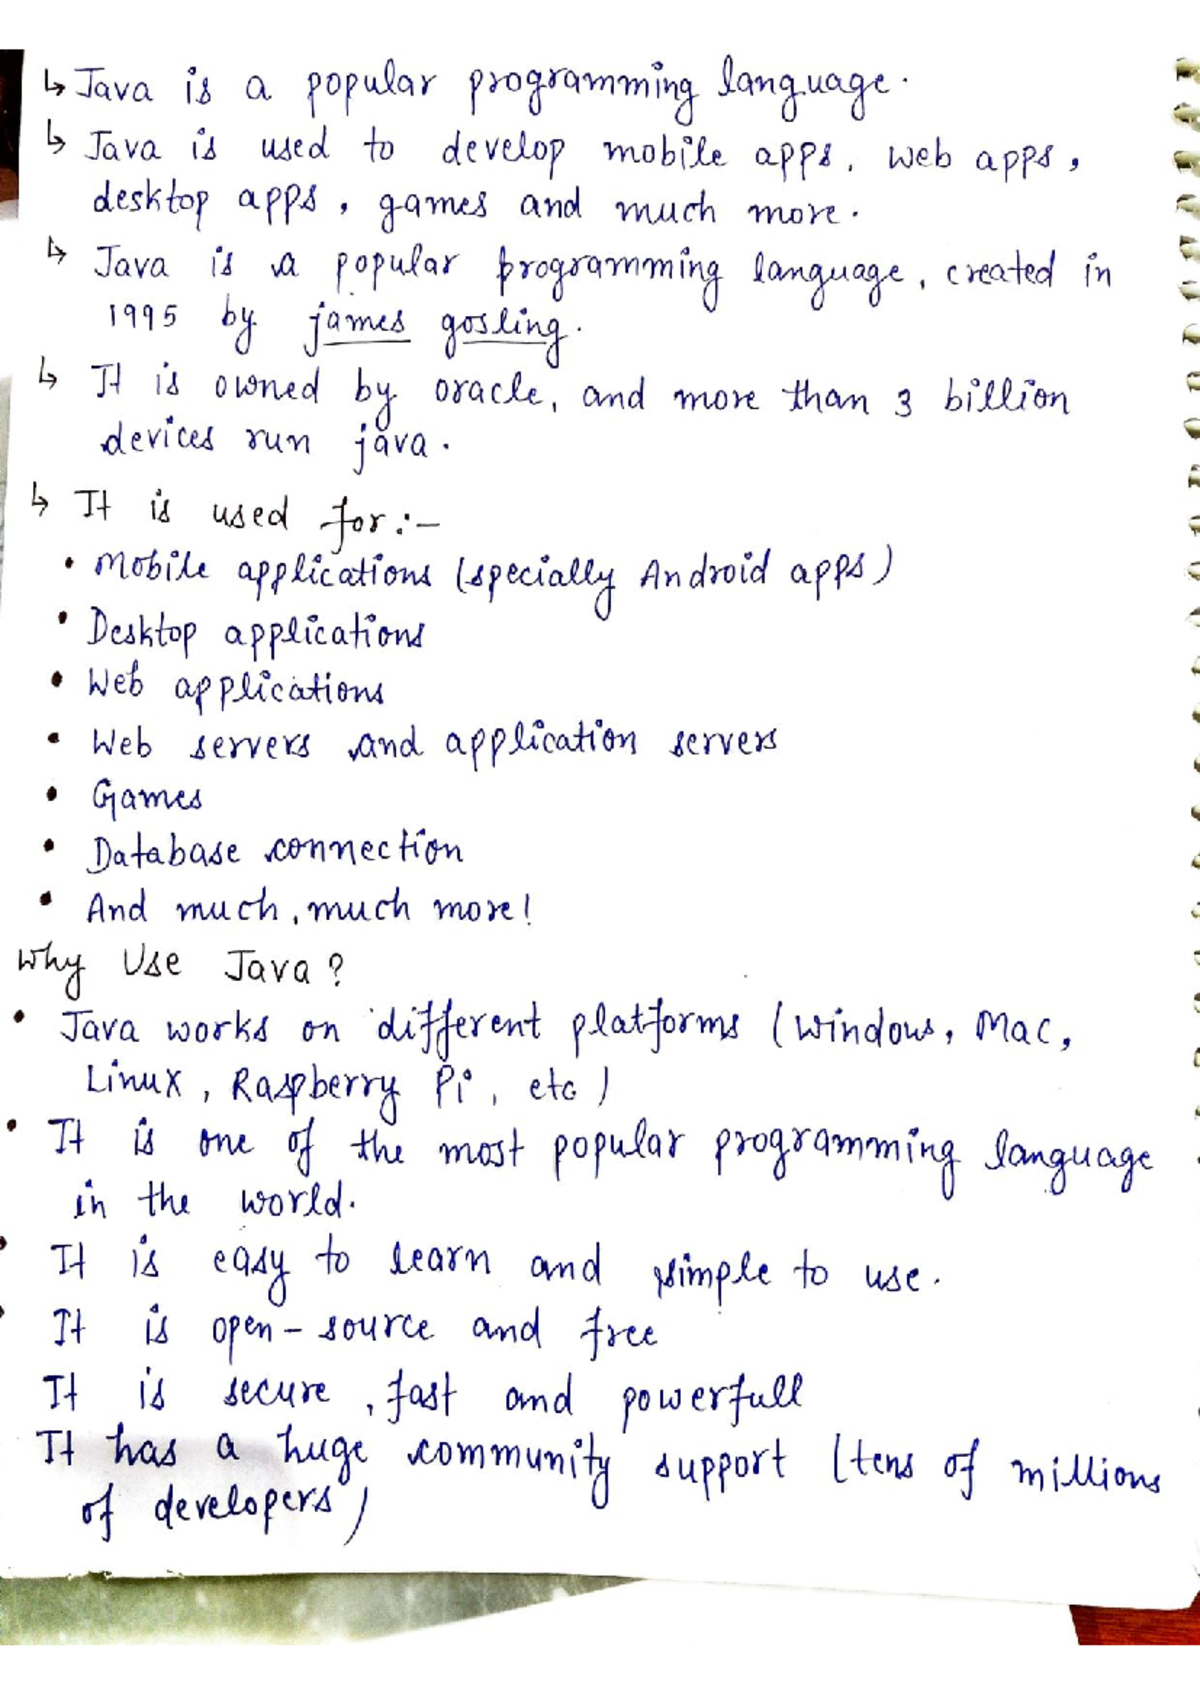 ↳ Java is a popular programming language.
↳ Java is used to develop mobile apps, web apps,
desktop apps, games and much more.
↳ Java is a popular programming language, created in
1995 by james gosling.
↳ It is owned by oracle, and more than 3 billion
devices run java.
↳ It is used for:-
• Mobile applications (specially Android apps)
• Desktop applications
• Web applications
• Web servers and application servers
• Games
• Database connection
• And much, much more!
Why Use Java?
• Java works on different platforms (Windows, Mac,
Linux, Raspberry Pi, etc)
• It is one of the most popular programming language
in the world.
• It is easy to learn and simple to use.
• It is open-source and free
It is secure, fast and powerfull
It has a huge community support (tens of millions
of developers)